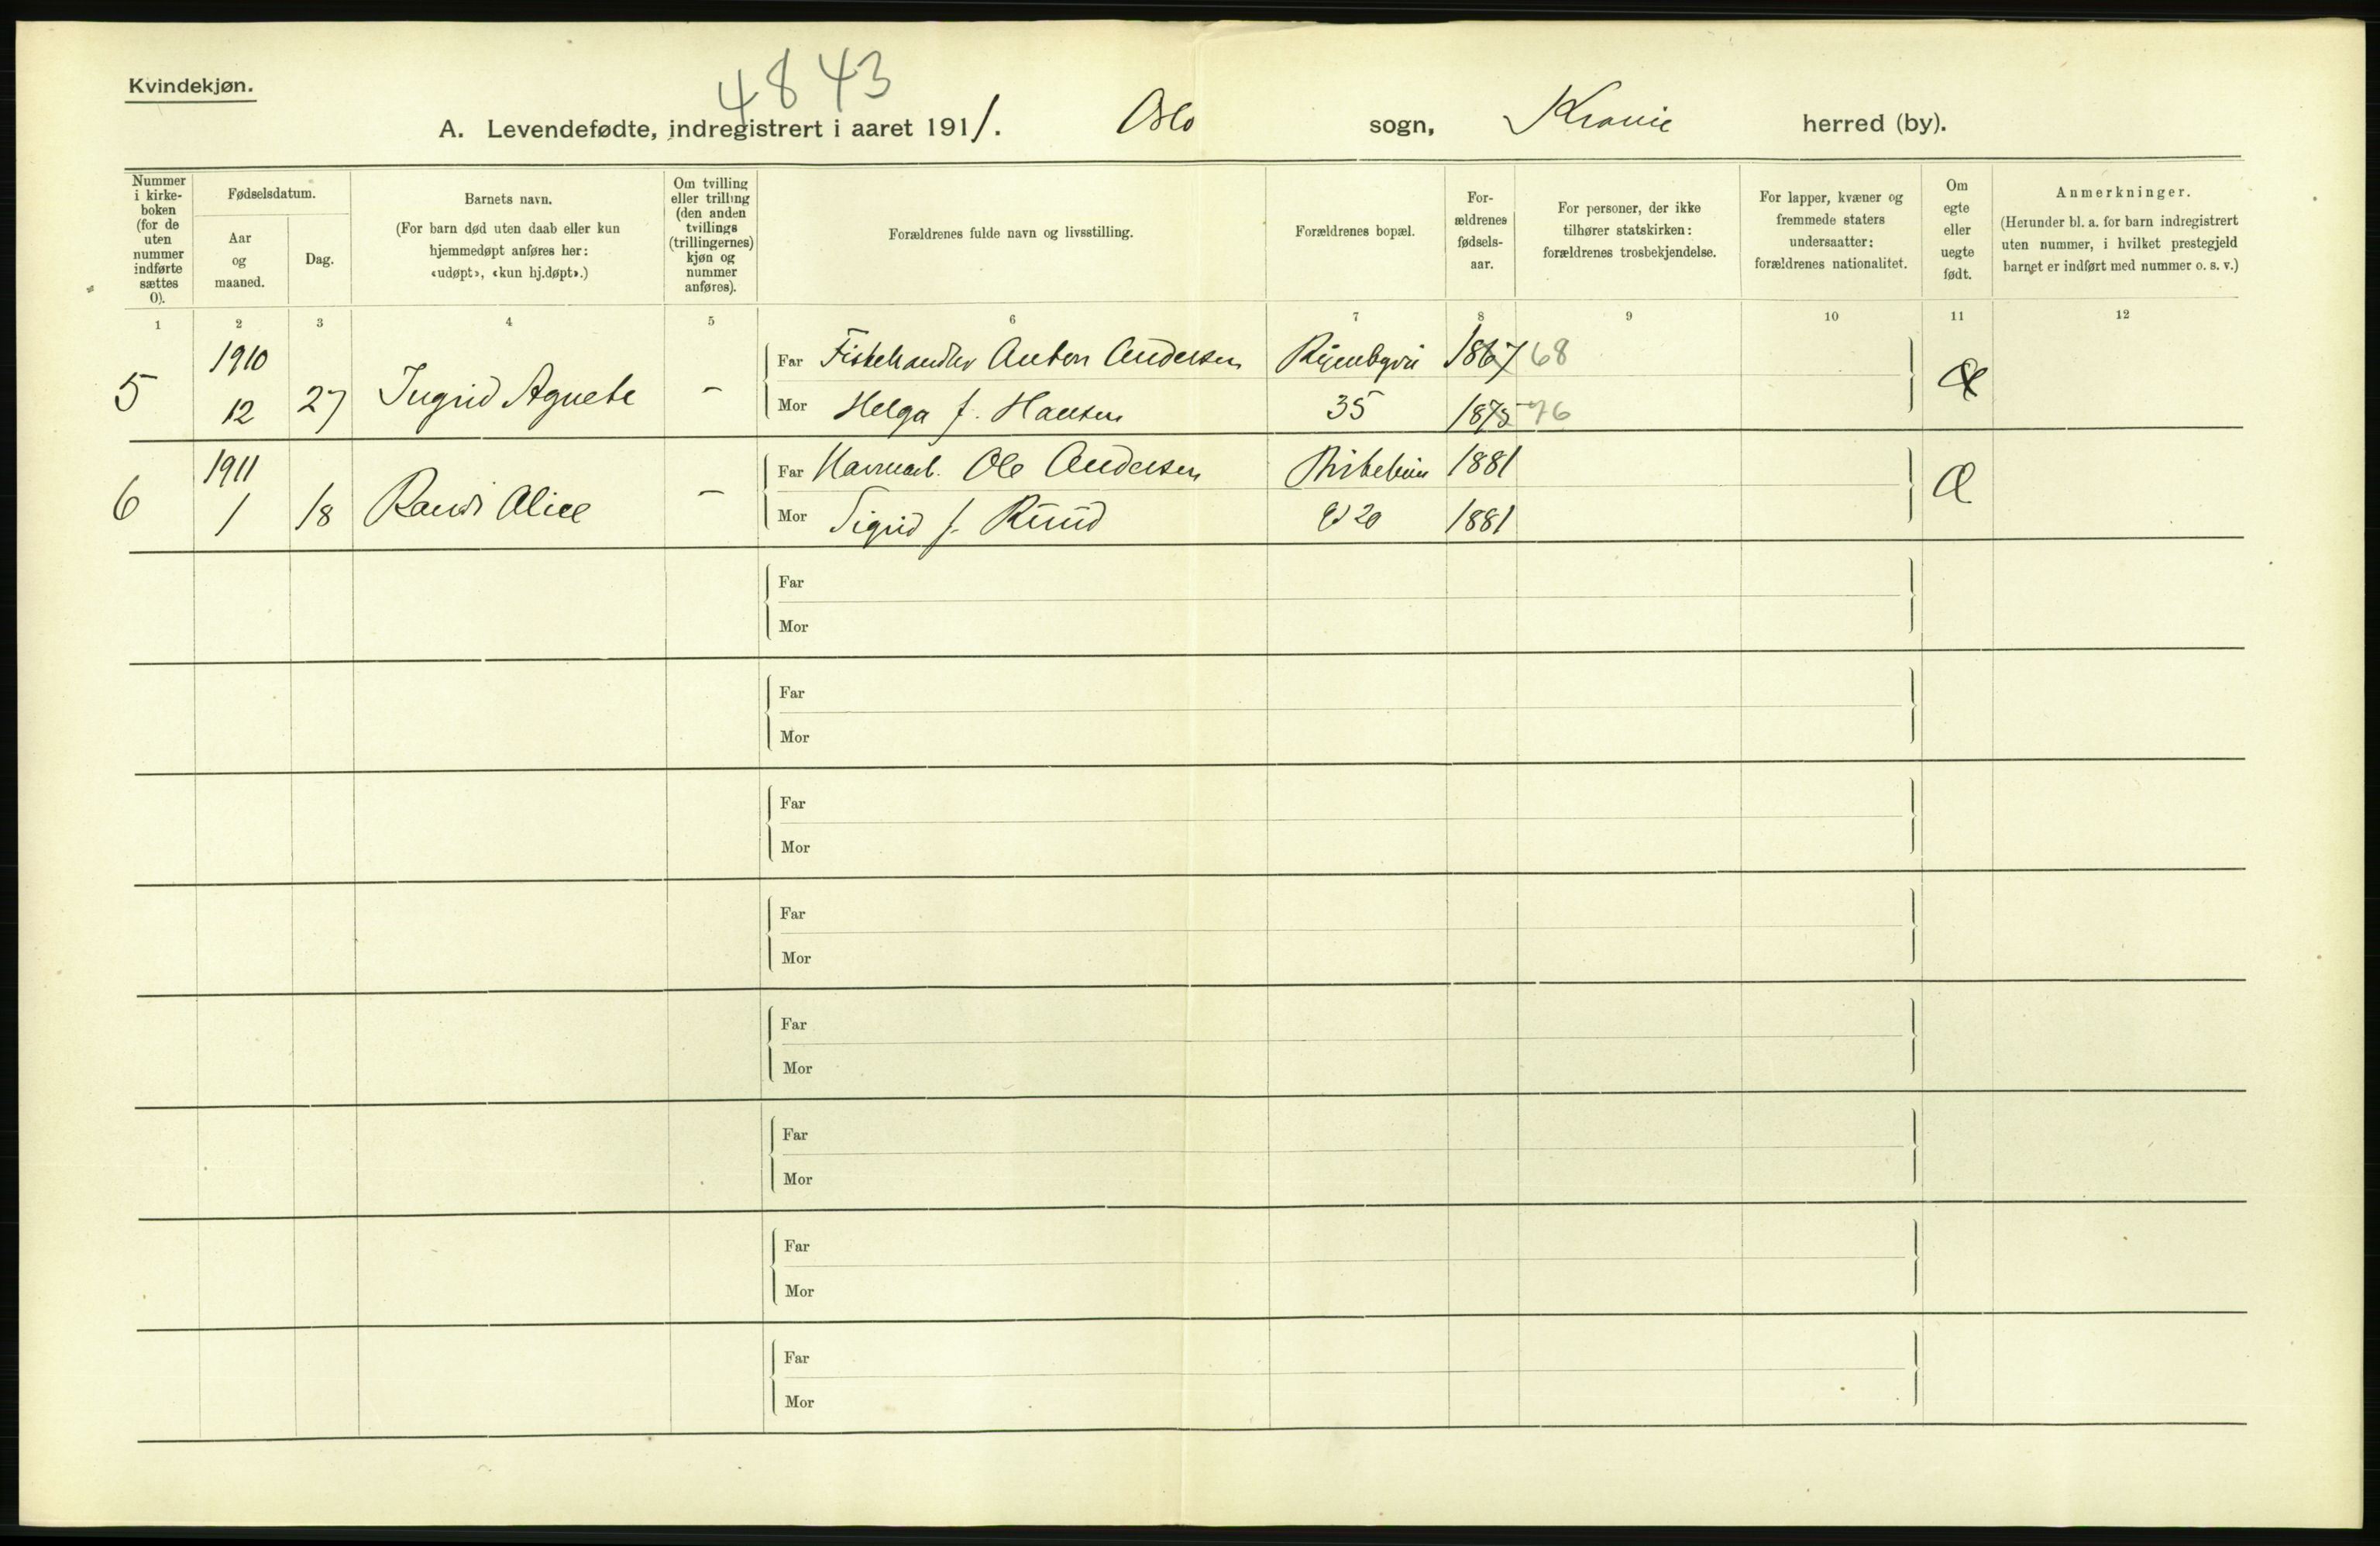 Kvindekjøn.
4843
A. Levendefødte, indregistrert i aaret 1911. Oslo sogn, Krania herred (by).
Nummer i kirke- boken (for de uten nummer indførte sættes 0).
Fødselsdatum.
Aar og maaned.
Dag.
Barnets navn.
(For barn død uten daab eller kun hjemmedøpt anføres her: «udøpt», «kun hj.døpt».)
Om tvilling eller trilling (den anden tvillings (trillingernes) kjøn og nummer anføres).
Forældrenes fulde navn og livsstilling.
Forældrenes bopæl.
For- ældrenes fødsels- aar.
For personer, der ikke tilhører statskirken: forældrenes trosbekjendelse.
For lapper, kvæner og fremmede staters undersaatter: forældrenes nationalitet.
Om egte eller uegte født.
Anmerkninger.
(Herunder bl. a. for barn indregistrert uten nummer, i hvilket prestegjeld barnet er indført med nummer o. s. v.)
1 2 3 4 5 6 7 8 9 10 11 12
5 1910 12 27 Ingrid Agnete - Far Fiskehandler Anton Andersen 1867 68 Æ
Mor Helga f. Hansen 35 1875 76
6 1911 1 18 Randi Alice - Far Ole Andersen 1881 Æ
Mor Sigrid f. Ruud 20 1881
Far
Mor
Far
Mor
Far
Mor
Far
Mor
Far
Mor
Far
Mor
Far
Mor
Far
Mor